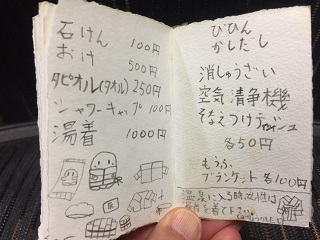 石けん 100円
おけ 500円
タピオル(タオル) 250円
シャワーキャプ 100円
湯着 1000円
びひん
かしだし
消しゅうざい
空気清浄機
そなえつけティッシュ
各50円
もうふ
ブランケット 各100円
温泉に入る時、女性は
湯着を着て下さい。